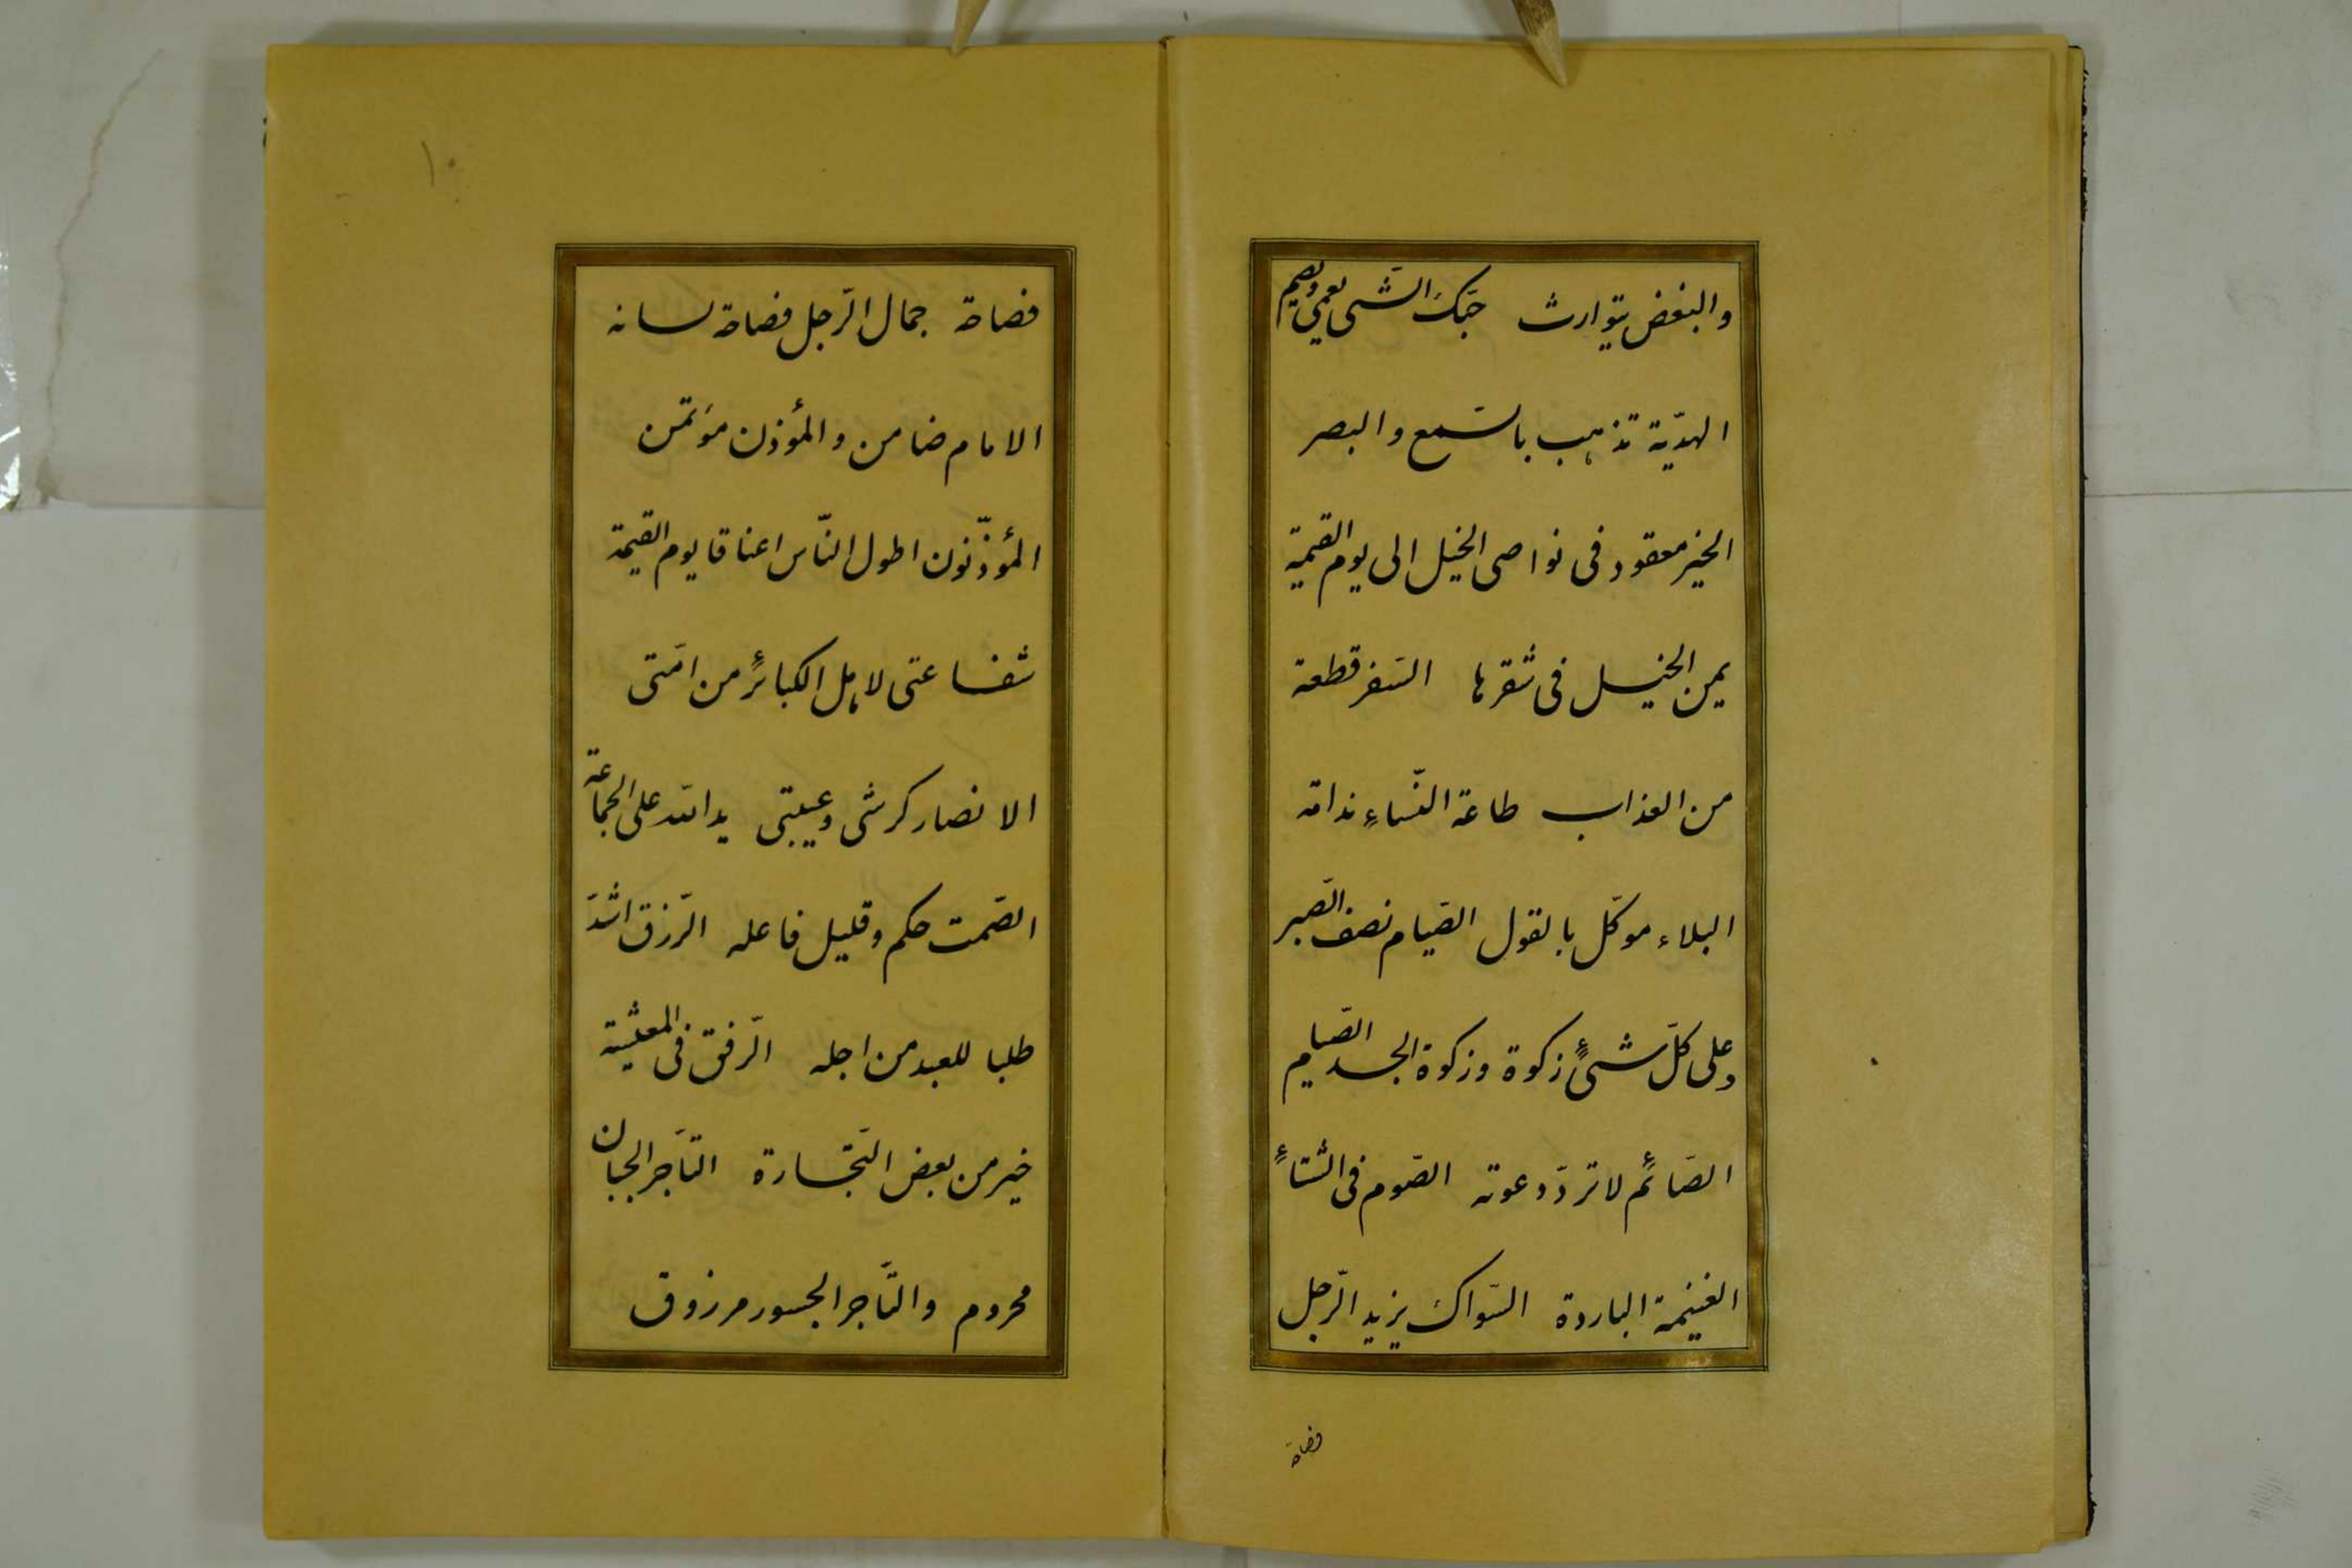 والبغض يتوارث حبّك الشّى يعمي ويصيم
الهدّية تذهب بالسّمع والبصر
الخير معقود فى نواصى الخيل الى يوم القيمة
يمن الخيل فى شقرها السّفر قطعة
من العذاب طاعة النّساءِ ندامة
البلاء موكّل بالقول الصّيام نصف الصّبر
وعلى كلّ شىءٍ زكوة وزكوة الجسد الصّيام
الصّائم لا تردّ دعوته الصّوم فى الشّتاءٍ
الغنيمة الباردة السّواك يزيد الرّجل
فصاحة
فصاحة جمال الرّجل فصاحة لسانه
الامام ضامن والمؤذن مؤتمن
المؤذّنون اطول النّاس اعناقا يوم القيمة
شفاعتى لاهل الكبائر من امّتى
الانصار كرشى وعيبتى يد الله على الجماعة
الصّمت حكم وقليل فاعله الرّزق اشدّ
طلبا للعبد من اجله الرّفق فى المعيشة
خير من بعض التّجارة التّاجر الجبان
محروم والتّاجر الجسور مرزوق
١٠